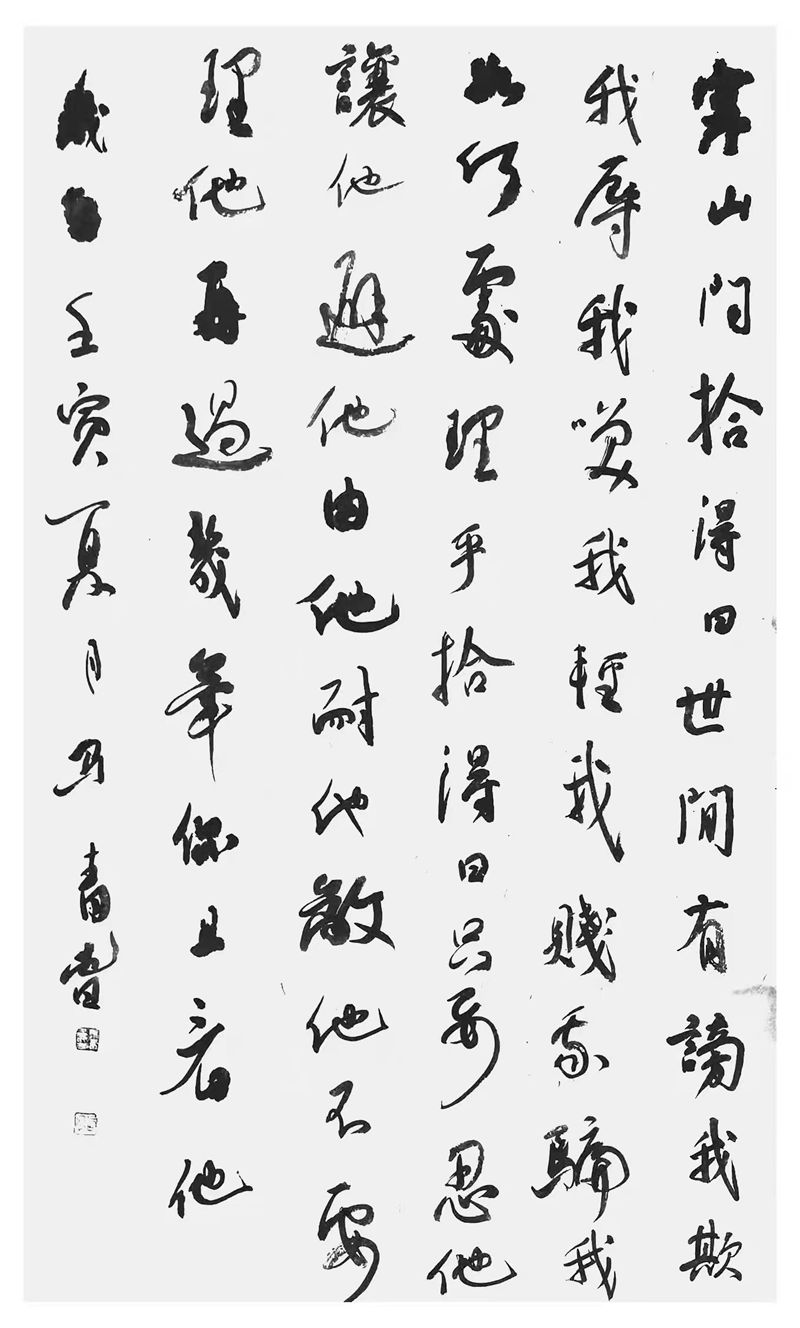 寒山問拾得曰世閒有謗我欺
我辱我笑我輕我賤我騙我
如何處理乎拾得曰只要忍他
讓他避他由他耐他敬他不要
理他再過幾年你且看他
歲壬寅夏月写